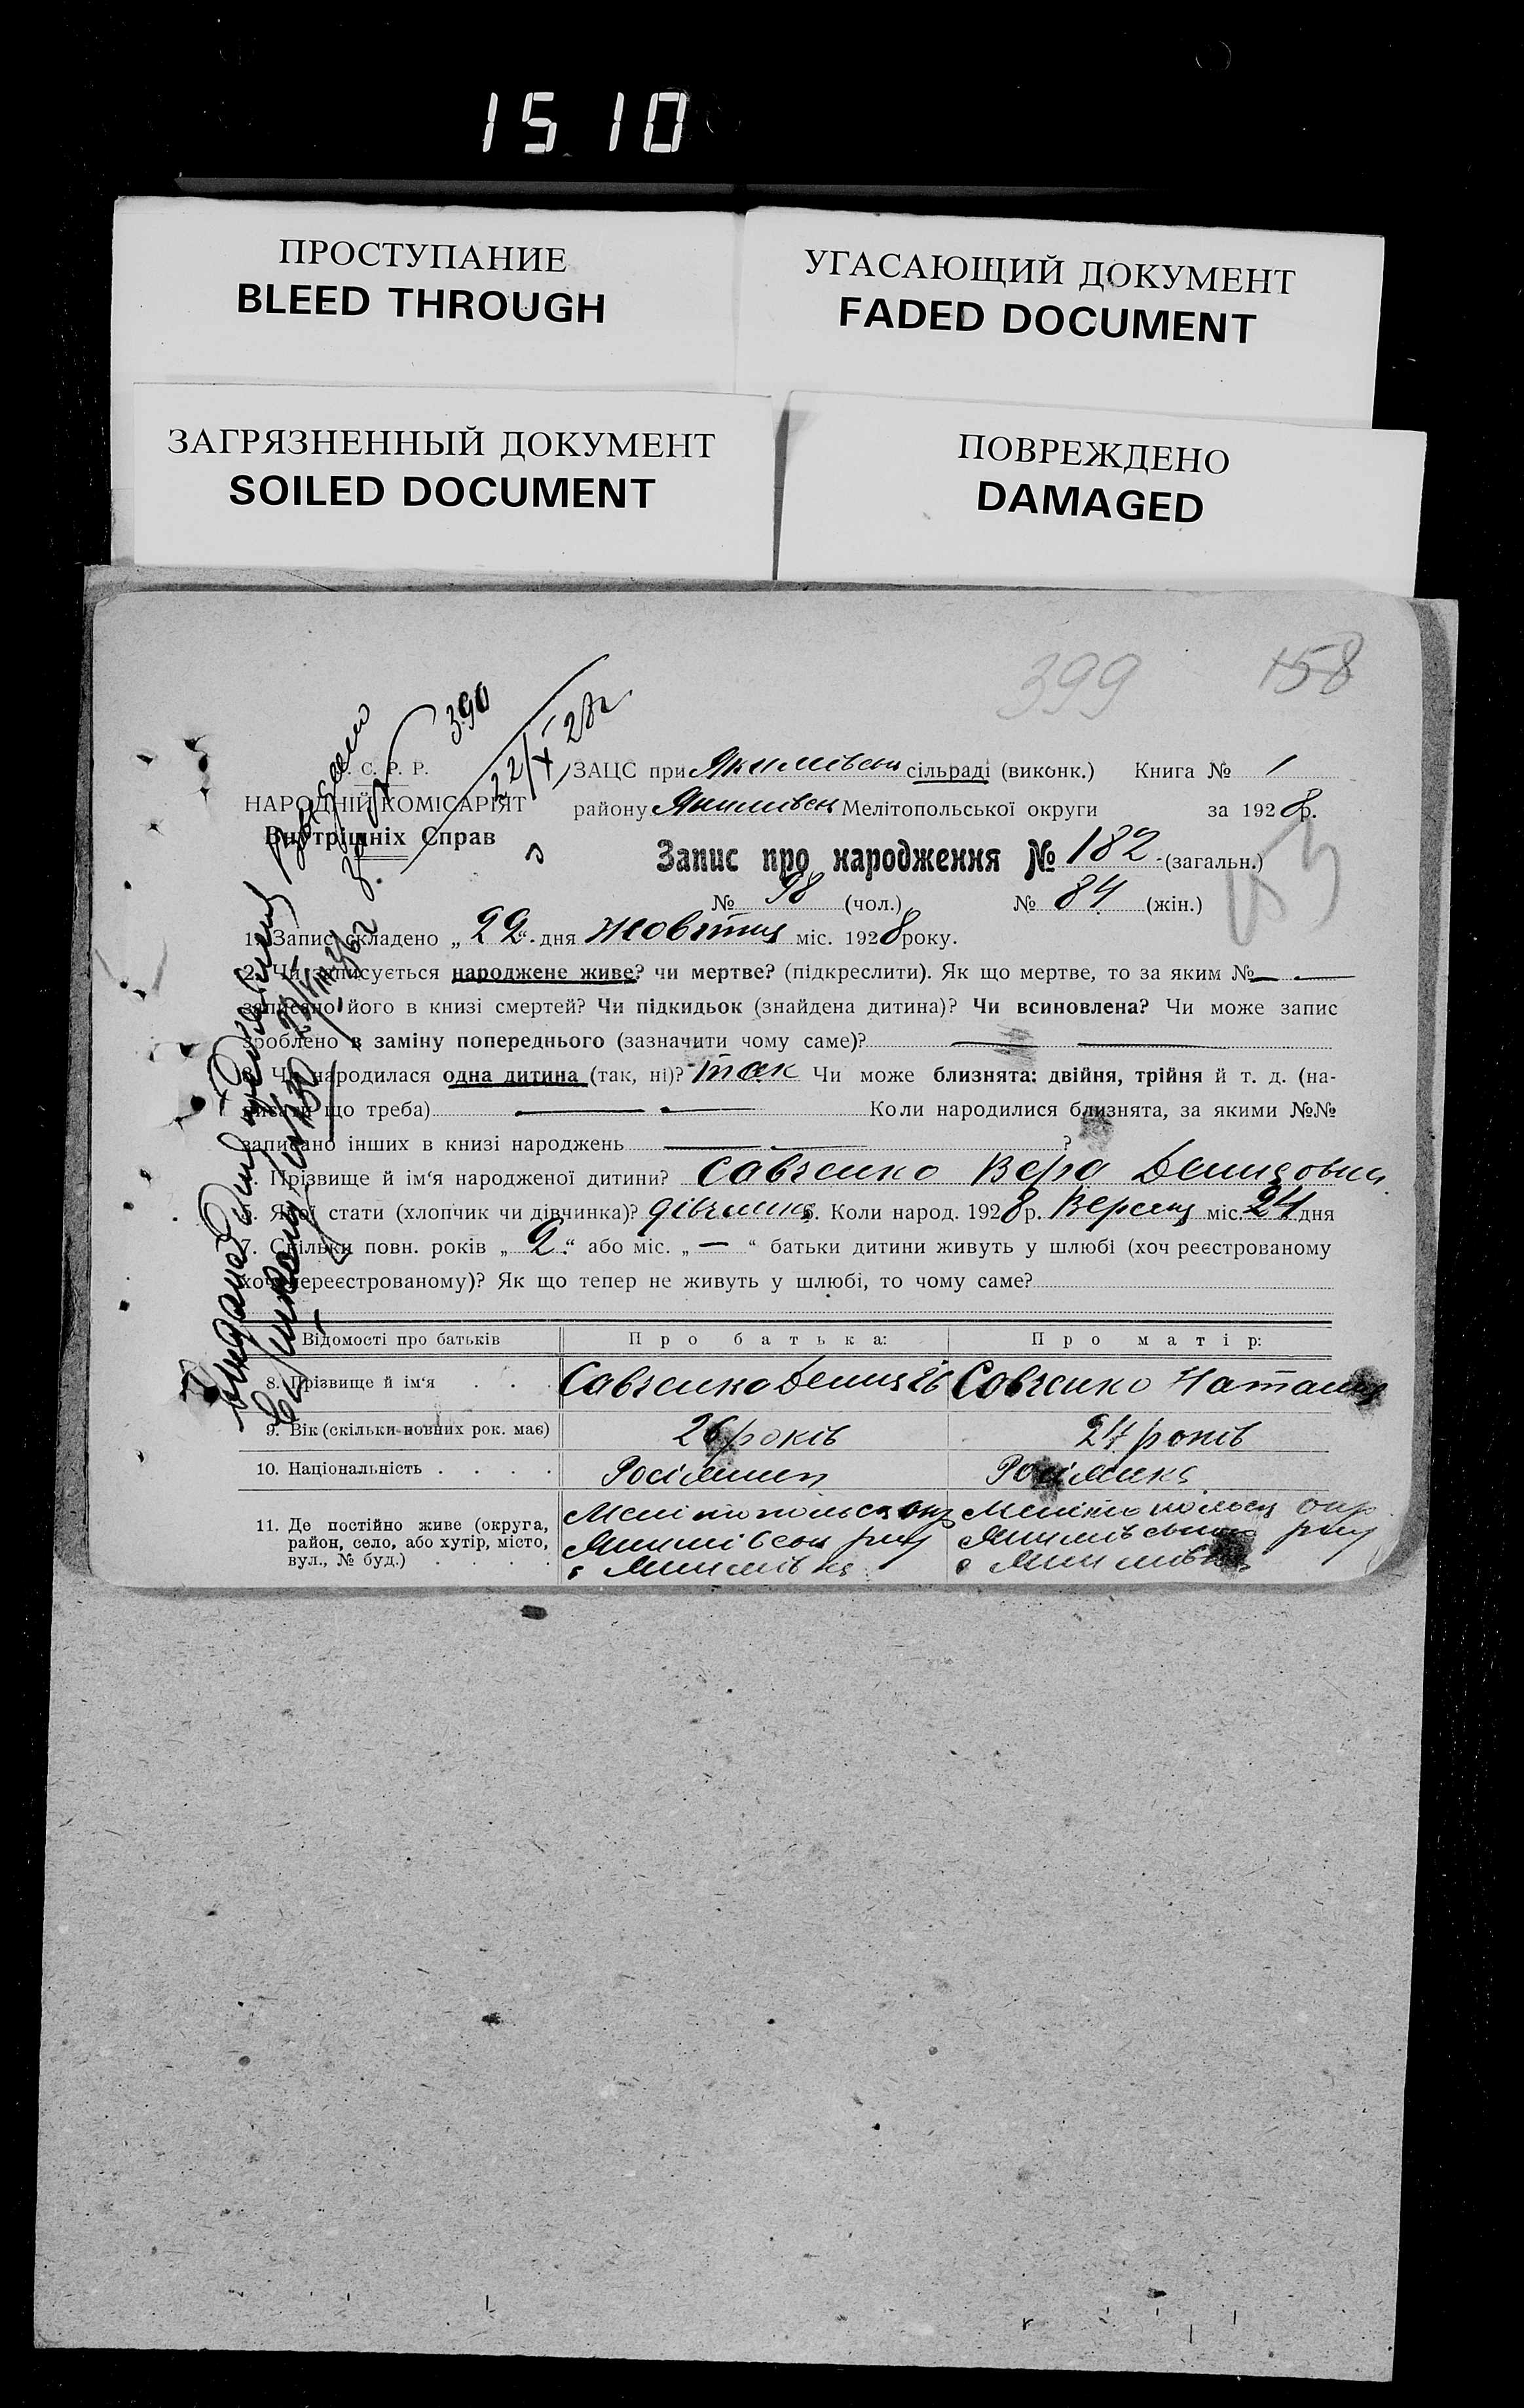 15 10
ПРОСТУПАНИЕ
BLEED THROUGH
УГАСАЮЩИЙ ДОКУМЕНТ
FADED DOCUMENT
ЗАГРЯЗНЕННЫЙ ДОКУМЕНТ
SOILED DOCUMENT
ПОВРЕЖДЕНО
DAMAGED
399 158
390
22/X 28г
С. Р. Р.
НАРОДНІЙ КОМІСАРІЯТ
Внутрішніх Справ
ЗАЦС при Якимівськ сільраді (виконк.) Книга № 1
району Якимівськ Мелітопольської округи за 1928 р.
Запис про народження № 182 (загальн.)
№ 98 (чол.) № 84 (жін.)
1. Запис складено „ 22 “ дня Жовтня міс. 1928 року.
2. Чи записується народжене живе? чи мертве? (підкреслити). Як що мертве, то за яким № —
записано його в книзі смертей? Чи підкидьок (знайдена дитина)? Чи всиновлена? Чи може запис
зроблено в заміну попереднього (зазначити чому саме)? — —
3. Чи народилася одна дитина (так, ні)? так Чи може близнята: двійня, трійня й т. д. (на-
писати що треба) — — Коли народилися близнята, за якими №№
записано інших в книзі народжень — — ?
4. Прізвище й ім'я народженої дитини? Савченко Вера Денисовна
5. Якої стати (хлопчик чи дівчинка)? дівчинка 6. Коли народ. 1928 р. Вересня міс. 24 дня
7. Скільки повн. років „ 2 “ або міс. „ — “ батьки дитини живуть у шлюбі (хоч реєстрованому
хоч нереєстрованому)? Як що тепер не живуть у шлюбі, то чому саме?
Відомості про батьків Про батька: Про матір:
8. Прізвище й ім'я . . . Савченко Денис Савченко Наталия
9. Вік (скільки повних рок. має) 26 років 24 років
10. Національність . . . . Росіянин Росіянка
11. Де постійно живе (округа, Мелітопольск окр Мелітопольск окр
район, село, або хутір, місто, Якимівськ рну Якимівськ рну
вул., № буд.) . . . . с Якимівка с Якимівка